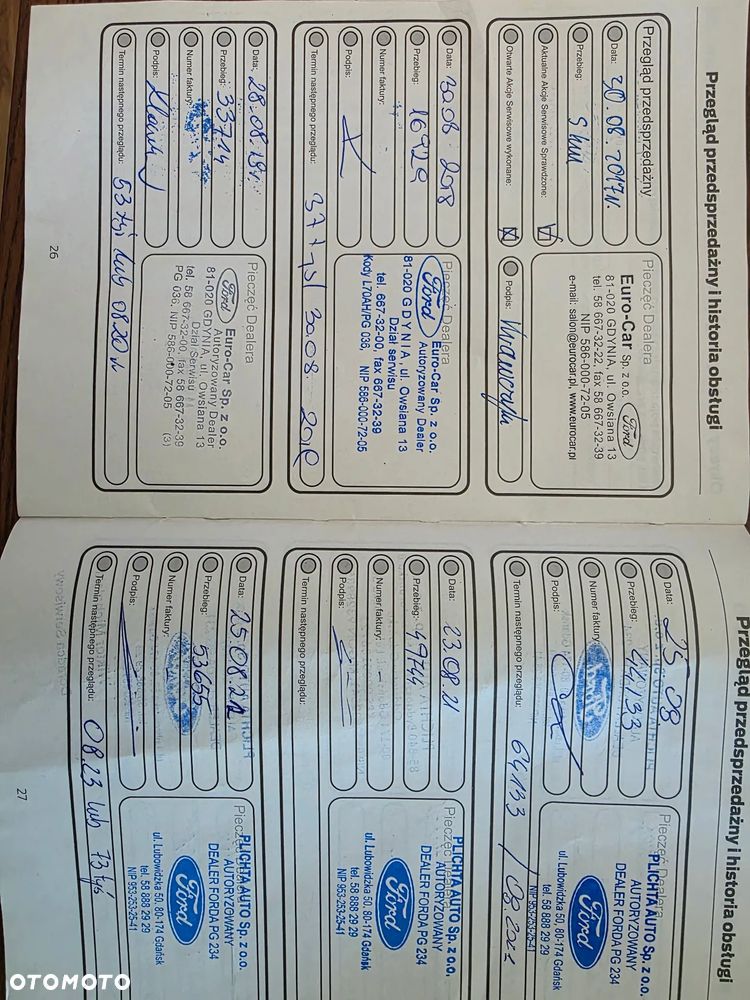 Przegląd przedsprzedażny i historia obsługi
Przegląd przedsprzedażny
Data: 30.08.2017r.
Przebieg: 9 km
Aktualne Akcje Serwisowe Sprawdzone:
Otwarte Akcje Serwisowe wykonane:
Pieczęć Dealera
Euro-Car Sp. z o.o.
81-020 GDYNIA, ul. Owsiana 13
tel. 58 667-32-22, fax 58 667-32-39
NIP 586-000-72-05
e-mail: salon@eurocar.pl, www.eurocar.pl
Ford
Podpis:
Data: 30.08 2018
Przebieg: 16929
Numer faktury:
Podpis:
Termin następnego przeglądu: 37 tys / 30.08. 2019
Pieczęć Dealera
Ford
Euro-Car Sp. z o.o.
Autoryzowany Dealer
81-020 GDYNIA, ul. Owsiana 13
Dział serwisu
tel. 667-32-00, fax 667-32-39
Kody L70AH/PG 036, NIP 586-000-72-05
Data: 28.08.19r
Przebieg: 33714
Numer faktury:
Podpis:
Termin następnego przeglądu: 53 tyś lub 08.20 r
Pieczęć Dealera
Ford
Euro-Car Sp. z o.o.
Autoryzowany Dealer
81-020 GDYNIA, ul. Owsiana 13
Dział Serwisu
tel. 58 667-32-00, fax 58 667-32-39
PG 036, NIP 586-000-72-05 (3)
26
Przegląd przedsprzedażny i historia obsługi
Data: 25 08
Przebieg: 44133
Numer faktury:
Podpis:
Termin następnego przeglądu: 64133 / 08.2021
Pieczęć Dealera
PLICHTA AUTO Sp. z o.o.
AUTORYZOWANY
DEALER FORDA PG 234
Ford
ul. Lubowidzka 50, 80-174 Gdańsk
tel. 58 888 29 29
NIP 953-253-25-41
Data: 23.08.21
Przebieg: 49744
Numer faktury:
Podpis:
Termin następnego przeglądu:
Pieczęć Dealera
PLICHTA AUTO Sp. z o.o.
AUTORYZOWANY
DEALER FORDA PG 234
Ford
ul. Lubowidzka 50, 80-174 Gdańsk
tel. 58 888 29 29
NIP 953-253-25-41
Data: 25.08.22
Przebieg: 53655
Numer faktury:
Podpis:
Termin następnego przeglądu: 08.23 lub 73 tyś
Pieczęć Dealera
PLICHTA AUTO Sp. z o.o.
AUTORYZOWANY
DEALER FORDA PG 234
Ford
ul. Lubowidzka 50, 80-174 Gdańsk
tel. 58 888 29 29
NIP 953-253-25-41
27
OTOMOTO